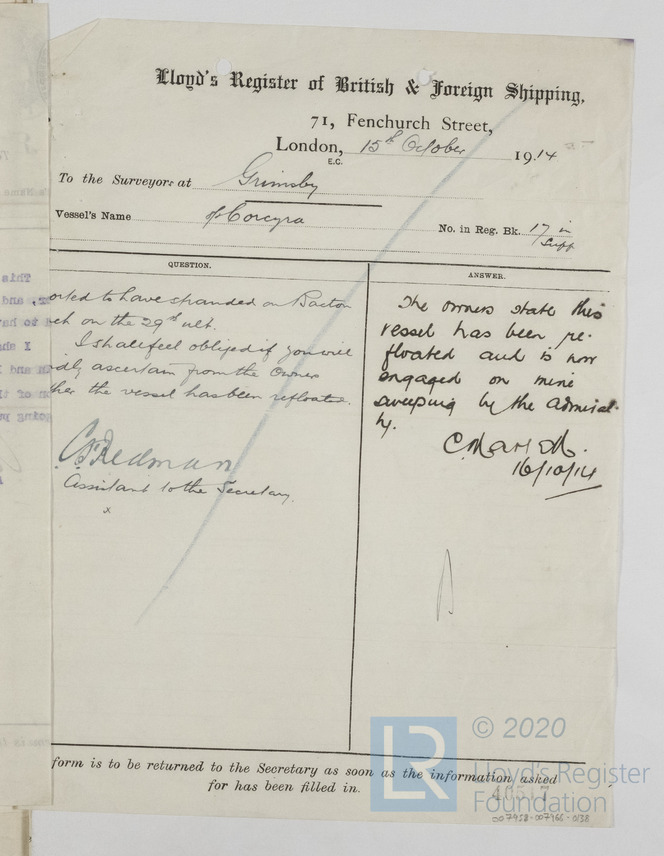 Lloyd's Register of British & Foreign Shipping,
71, Fenchurch Street,
London, 15th October 1914
E.C.
To the Surveyors at Grimsby
Vessel's Name Corcyra
No. in Reg. Bk. 17 in
Supp
QUESTION.
ANSWER.
orted to have stranded on Bacton
ch on the 29th ult.
I shall feel obliged if you will
dly ascertain from the Owners
ther the vessel has been refloated.
Redman
Assistant to the Secretary.
x
The owners state this
vessel has been re-
floated and is now
engaged on mine
sweeping by the Admiral-
ty.
16/10/14
form is to be returned to the Secretary as soon as the information asked
for has been filled in.
This
, and
to ha
I sha
LR
© 2020
Lloyd's Register
Foundation
007958-007966-0138